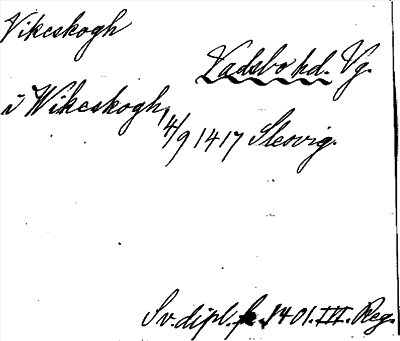 Vikeskogh
Vadsbo hd. Vg.
i Wikeskogh,
4/9 1417 Slesvig.
Sv. dipl. fr. 1401. III. Reg.